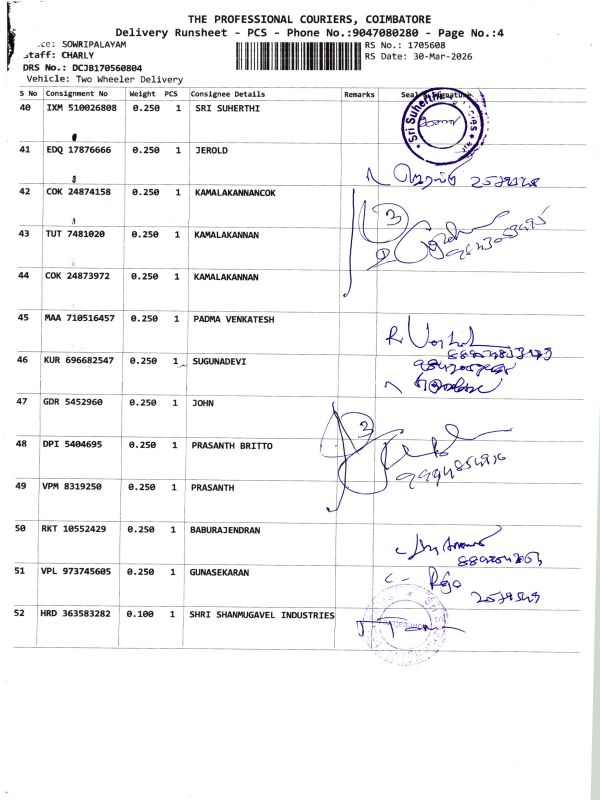 THE PROFESSIONAL COURIERS, COIMBATORE
Delivery Runsheet - PCS - Phone No.:9047080280 - Page No.:4
SOWRIPALAYAM RS No.: 1705608
Staff: CHARLY RS Date: 30-Mar-2026
DRS No.: DCJB170560804
Vehicle: Two Wheeler Delivery
S No Consignment No Weight PCS Consignee Details Remarks Seal Signature
40 IXM 510026808 0.250 1 SRI SUHERTHI
Sri Suherthi
41 EDQ 17876666 0.250 1 JEROLD
42 COK 24874158 0.250 1 KAMALAKANNANCOK
3
43 TUT 7481020 0.250 1 KAMALAKANNAN
44 COK 24873972 0.250 1 KAMALAKANNAN
45 MAA 710516457 0.250 1 PADMA VENKATESH
46 KUR 696682547 0.250 1 SUGUNADEVI
47 GDR 5452960 0.250 1 JOHN
3
48 DPI 5404695 0.250 1 PRASANTH BRITTO
49 VPM 8319250 0.250 1 PRASANTH
50 RKT 10552429 0.250 1 BABURAJENDRAN
51 VPL 973745605 0.250 1 GUNASEKARAN
52 HRD 363583282 0.100 1 SHRI SHANMUGAVEL INDUSTRIES